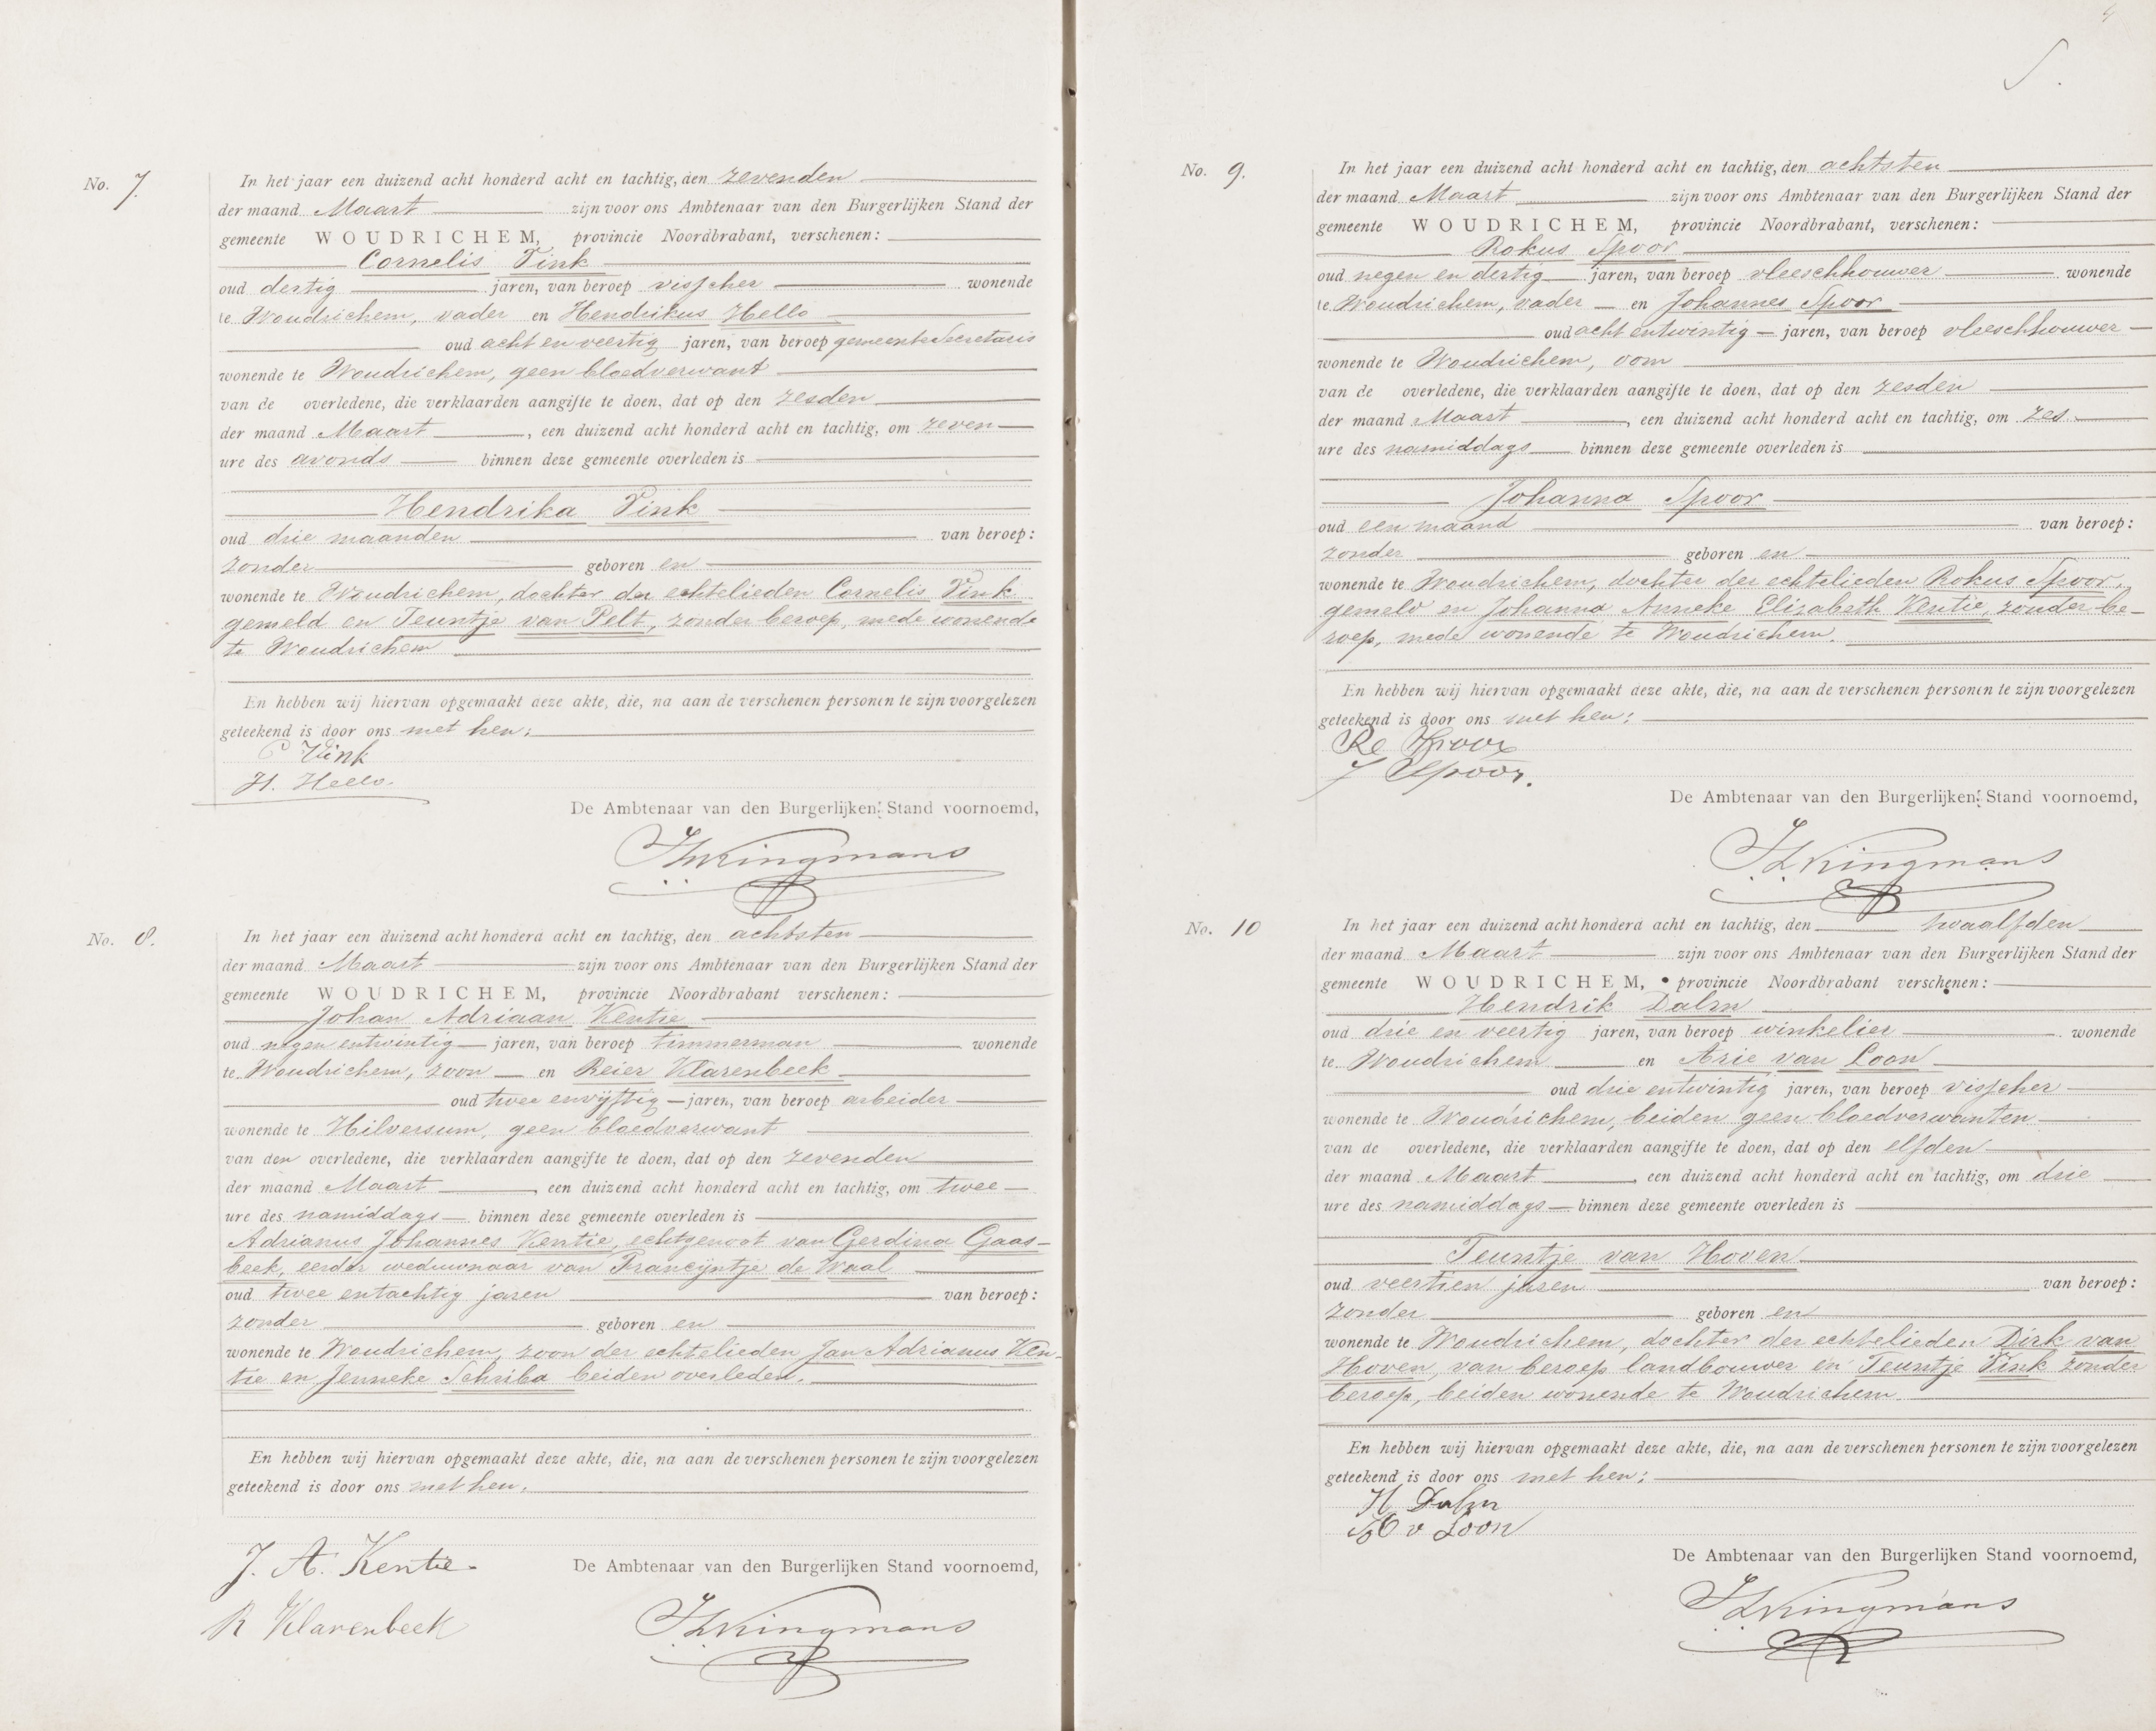 No. 7.
In het jaar een duizend acht honderd acht en tachtig, den zevenden
der maand Maart zijn voor ons Ambtenaar van den Burgerlijken Stand der
gemeente WOUDRICHEM, provincie Noordbrabant, verschenen:
Cornelis Vink
oud dertig jaren, van beroep visscher wonende
te Woudrichem, vader en Hendrikus Hello
oud acht en veertig jaren, van beroep gemeente Secretaris
wonende te Woudrichem, geen bloedverwant
van de overledene, die verklaarden aangifte te doen, dat op den zesden
der maand Maart, een duizend acht honderd acht en tachtig, om zeven
ure des avonds binnen deze gemeente overleden is
Hendrika Vink
oud drie maanden van beroep:
zonder geboren en
wonende te Woudrichem, dochter der echtelieden Cornelis Vink
gemeld en Teuntje van Pelt, zonder beroep, mede wonende
te Woudrichem
En hebben wij hiervan opgemaakt deze akte, die, na aan de verschenen personen te zijn voorgelezen
geteekend is door ons met hen:
C Vink
H. Hello.
De Ambtenaar van den Burgerlijken Stand voornoemd,
Kingmans
No. 8.
In het jaar een duizend acht honderd acht en tachtig, den achtsten
der maand Maart zijn voor ons Ambtenaar van den Burgerlijken Stand der
gemeente WOUDRICHEM, provincie Noordbrabant verschenen:
Johan Adriaan Kentie
oud negen entwintig jaren, van beroep timmerman wonende
te Woudrichem, zoon en Reier Klarenbeek
oud twee envijftig jaren, van beroep arbeider
wonende te Hilversum, geen bloedverwant
van den overledene, die verklaarden aangifte te doen, dat op den zevenden
der maand Maart, een duizend acht honderd acht en tachtig, om twee
ure des namiddags binnen deze gemeente overleden is
Adrianus Johannes Kentie, echtgenoot van Gerdina Gaas-
beek, eerder weduwnaar van Francijntje de Waal
oud twee entachtig jaren van beroep:
zonder geboren en
wonende te Woudrichem, zoon der echtelieden Jan Adrianus Ken-
tie en Jenneke Schriba beiden overleden.
En hebben wij hiervan opgemaakt deze akte, die, na aan de verschenen personen te zijn voorgelezen
geteekend is door ons met hen.
J. A. Kentie
De Ambtenaar van den Burgerlijken Stand voornoemd,
R Klarenbeek
Kingmans
No. 9.
In het jaar een duizend acht honderd acht en tachtig, den achtsten
der maand Maart zijn voor ons Ambtenaar van den Burgerlijken Stand der
gemeente WOUDRICHEM, provincie Noordbrabant, verschenen:
Rokus Spoor
oud negen en dertig jaren, van beroep vleeschhouwer wonende
te Woudrichem, vader en Johannes Spoor
oud acht entwintig jaren, van beroep vleeschhouwer
wonende te Woudrichem, oom
van de overledene, die verklaarden aangifte te doen, dat op den zesden
der maand Maart, een duizend acht honderd acht en tachtig, om zes
ure des namiddags binnen deze gemeente overleden is
Johanna Spoor
oud een maand van beroep:
zonder geboren en
wonende te Woudrichem, dochter der echtelieden Rokus Spoor,
gemeld en Johanna Anneke Elizabeth Kentie, zonder be-
roep, mede wonende te Woudrichem.
En hebben wij hiervan opgemaakt deze akte, die, na aan de verschenen personen te zijn voorgelezen
geteekend is door ons met hen:
Spoor
J Spoor.
De Ambtenaar van den Burgerlijken Stand voornoemd,
Kingmans
No. 10
In het jaar een duizend acht honderd acht en tachtig, den twaalfden
der maand Maart zijn voor ons Ambtenaar van den Burgerlijken Stand der
gemeente WOUDRICHEM, provincie Noordbrabant verschenen:
Hendrik Dalm
oud drie en veertig jaren, van beroep winkelier wonende
te Woudrichem en Arie van Loon
oud drie entwintig jaren, van beroep visscher
wonende te Woudrichem, beiden geen bloedverwanten
van de overledene, die verklaarden aangifte te doen, dat op den elfden
der maand Maart, een duizend acht honderd acht en tachtig, om drie
ure des namiddags binnen deze gemeente overleden is
Teuntje van Hoven
oud veertien jaren van beroep:
zonder geboren en
wonende te Woudrichem, dochter der echtelieden Dirk van
Hoven, van beroep landbouwer en Teuntje Vink zonder
beroep, beiden wonende te Woudrichem.
En hebben wij hiervan opgemaakt deze akte, die, na aan de verschenen personen te zijn voorgelezen
geteekend is door ons met hen:
H Dalm
v Loon
De Ambtenaar van den Burgerlijken Stand voornoemd,
Kingmans